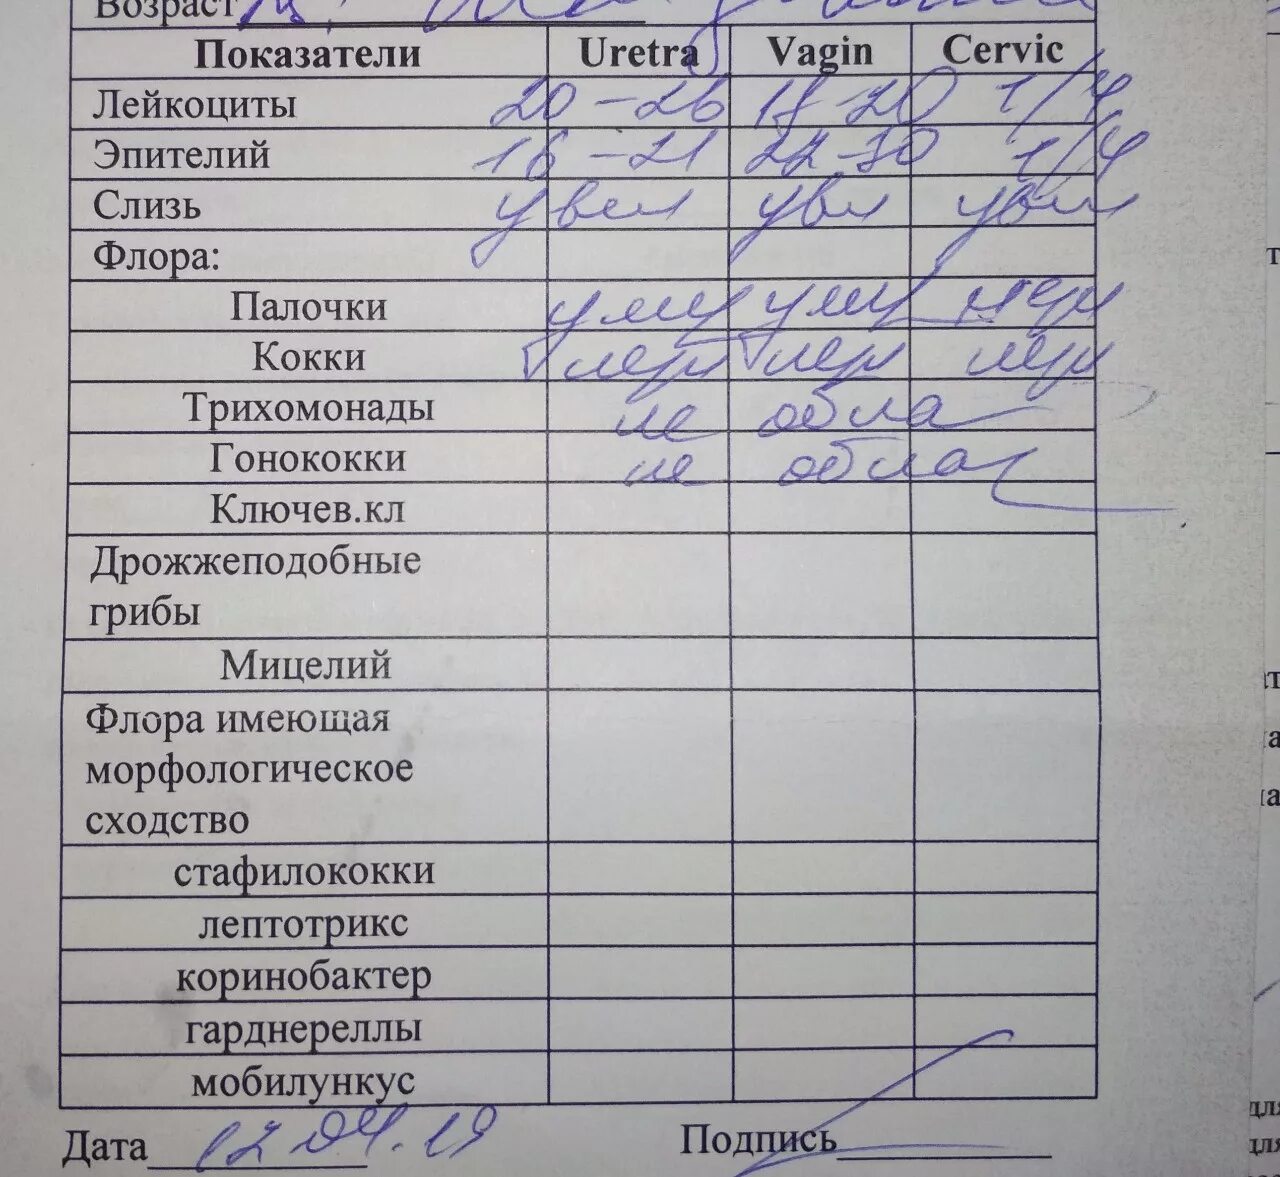 Возраст
Показатели Uretra Vagin Cervic
Лейкоциты 20-26 18-20 1/4
Эпителий 16-21 22-30 1/4
Слизь увел увл увел
Флора:
Палочки уму уму
Кокки
Трихомонады не обна
Гонококки не обна
Ключев.кл
Дрожжеподобные
грибы
Мицелий
Флора имеющая
морфологическое
сходство
стафилококки
лептотрикс
коринобактер
гарднереллы
мобилункус
Дата 12.04.19 Подпись